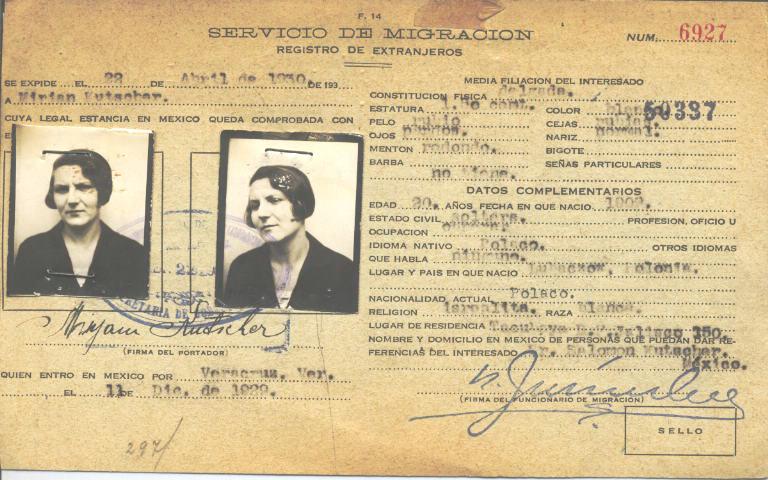 F. 14
SERVICIO DE MIGRACION
REGISTRO DE EXTRANJEROS
NUM. 6927
SE EXPIDE EL 22 DE Abril de 1930. DE 193
A Mirian Kutscher.
CUYA LEGAL ESTANCIA EN MEXICO QUEDA COMPROBADA CON
Miryam Kutscher
(FIRMA DEL PORTADOR)
QUIEN ENTRO EN MEXICO POR Veracruz, Ver.
EL 11 DE Dic. de 1929.
297/
MEDIA FILIACION DEL INTERESADO
CONSTITUCION FISICA delgada.
ESTATURA COLOR
50337
PELO rubio CEJAS
OJOS NARIZ normal.
MENTON redondo. BIGOTE
BARBA no tiene. SEÑAS PARTICULARES
DATOS COMPLEMENTARIOS
EDAD 20. AÑOS FECHA EN QUE NACIO 1909.
ESTADO CIVIL soltera. PROFESION, OFICIO U
OCUPACION
IDIOMA NATIVO Polaco. OTROS IDIOMAS
QUE HABLA ninguno.
LUGAR Y PAIS EN QUE NACIO Polonia.
NACIONALIDAD ACTUAL Polaco.
RELIGION israelita. RAZA blanca.
LUGAR DE RESIDENCIA Tacubaya D.F. Jalisco 150.
NOMBRE Y DOMICILIO EN MEXICO DE PERSONAS QUE PUEDAN DAR RE-
FERENCIAS DEL INTERESADO Salomon Kutscher.
México.
(FIRMA DEL FUNCIONARIO DE MIGRACION)
SELLO